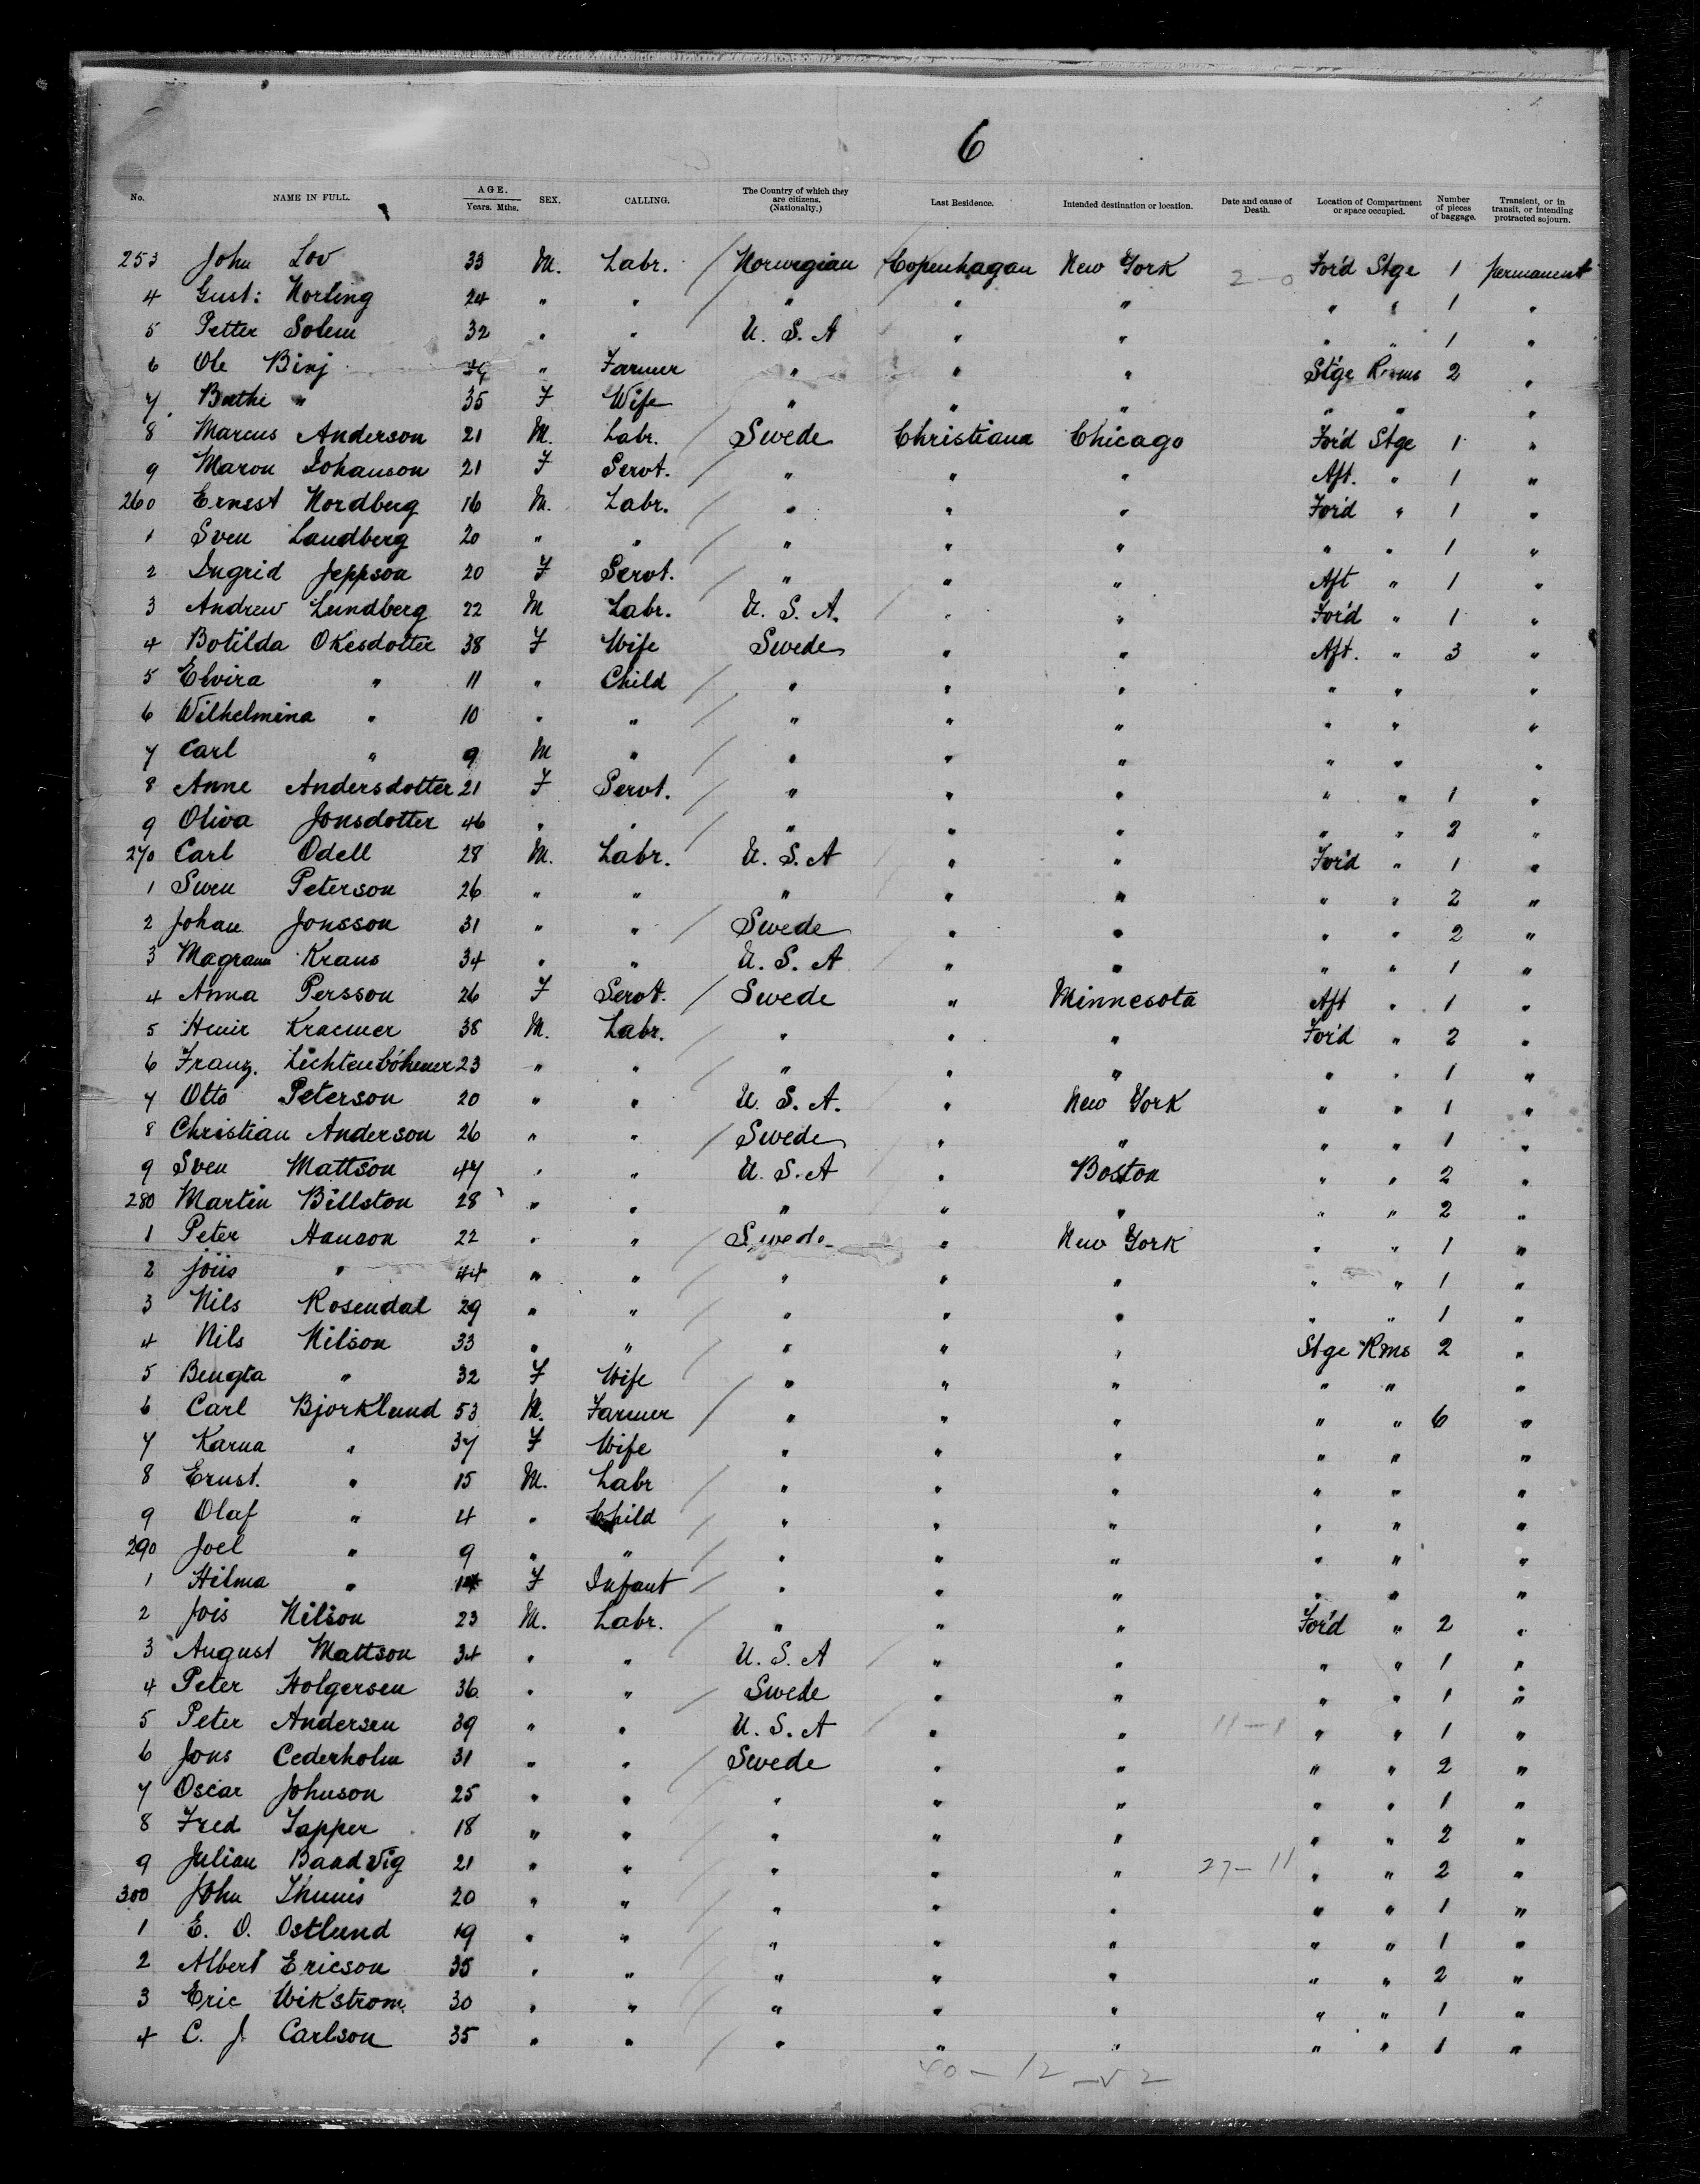 6
No. NAME IN FULL. AGE. Years. Mths. SEX. CALLING. The Country of which they are citizens. (Nationalty.) Last Residence. Intended destination or location. Date and cause of Death. Location of Compartment or space occupied. Number of pieces of baggage. Transient, or in transit, or intending protracted sojourn.
253 John Lov 33 M. Labr. / Norwegian / Copenhagan New York 2-0 For'd Stge 1 permanent
4 Gust: Norling 24 " " / " " " " " 1 "
5 Petter Solem 32 " " U. S. A " " " " 1 "
6 Ole Binj " Farmer " " " Stge Rooms 2 "
7 Bathe " 35 F Wife " " " " " "
8 Marcus Anderson 21 M. Labr. Swede Christiana Chicago For'd Stge 1 "
9 Maron Johanson 21 F Servt. / " " " Aft. " 1 "
260 Ernest Nordberg 16 M. Labr. / " " " For'd " 1 "
1 Sven Landberg 20 " " / " " " " " 1 "
2 Ingrid Jeppson 20 F Servt. / " " " Aft " 1 "
3 Andrew Lundberg 22 M Labr. U. S. A. / " " For'd " 1 "
4 Botilda Okesdotter 38 F Wife Swede " " Aft. " 3 "
5 Elvira " 11 " Child / " " " " " "
6 Wilhelmina " 10 " " / " " " " " "
7 Carl " 9 M " / " " " " " "
8 Anne Andersdotter 21 F Servt. / " " " " " 1 "
9 Oliva Jonsdotter 46 " " / " " " " " 2 "
270 Carl Odell 28 M. Labr. U. S. A / " " For'd " 1 "
1 Swen Peterson 26 " " " / " " " " 2 "
2 Johan Jonsson 31 " " / Swede " " " " 2 "
3 Kraus 34 " " U. S. A / " " " " 1 "
4 Anna Persson 26 F Servt. / Swede " Minnesota Aft " 1 "
5 Henir Kraemer 38 M. Labr. / " " " For'd " 2 "
6 Franz. 23 " " / " " " " " 1 "
7 Otto Peterson 20 " " U. S. A. / " New York " " 1 "
8 Christian Anderson 26 " " / Swede " " " " 1 "
9 Sven Mattson 47 " " U. S. A / " Boston " " 2 "
280 Martin Billston 28 " " " / " " " " 2 "
1 Peter Hanson 22 " " / Swede " New York " " 1 "
2 Jöis " 44 " " / " " " " " 1 "
3 Nils Rosendal 29 " " / " " " " " 1 "
4 Nils Nilson 33 " " / " " " Stge Rms 2 "
5 Bengta " 32 F Wife / " " " " " "
6 Carl Bjorklund 53 M. Farmer / " " " " " 6 "
7 Karna " 37 F Wife " " " " " "
8 Ernst. " 15 M. Labr / " " " " " "
9 Olaf " 4 " Child / " " " " " "
290 Joel " 9 " " / " " " " " "
1 Hilma " F Infant / " " " " " "
2 Jois Nilson 23 M. Labr. / " " " For'd " 2 "
3 August Mattson 34 " " U. S. A / " " " " 1 "
4 Peter Holgersen 36 " " / Swede " " " " 1 "
5 Peter Andersen 39 " " U. S. A / " " 11-1 " " 1 "
6 Jons Cederholm 31 " " / Swede " " " " 2 "
7 Oscar Johnson 25 " " / " " " " " 1 "
8 Fred Tapper 18 " " / " " " " " 2 "
9 Julian Baadvig 21 " " / " " " 27-11 " " 2 "
300 John Thunis 20 " " / " " " " " 1 "
1 E. O. Ostlund 19 " " / " " " " " 1 "
2 Albert Ericson 35 " " / " " " " " 2 "
3 Eric Wikstrom 30 " " / " " " " " 1 "
4 C. J. Carlson 35 " " / " " " " " 1 "